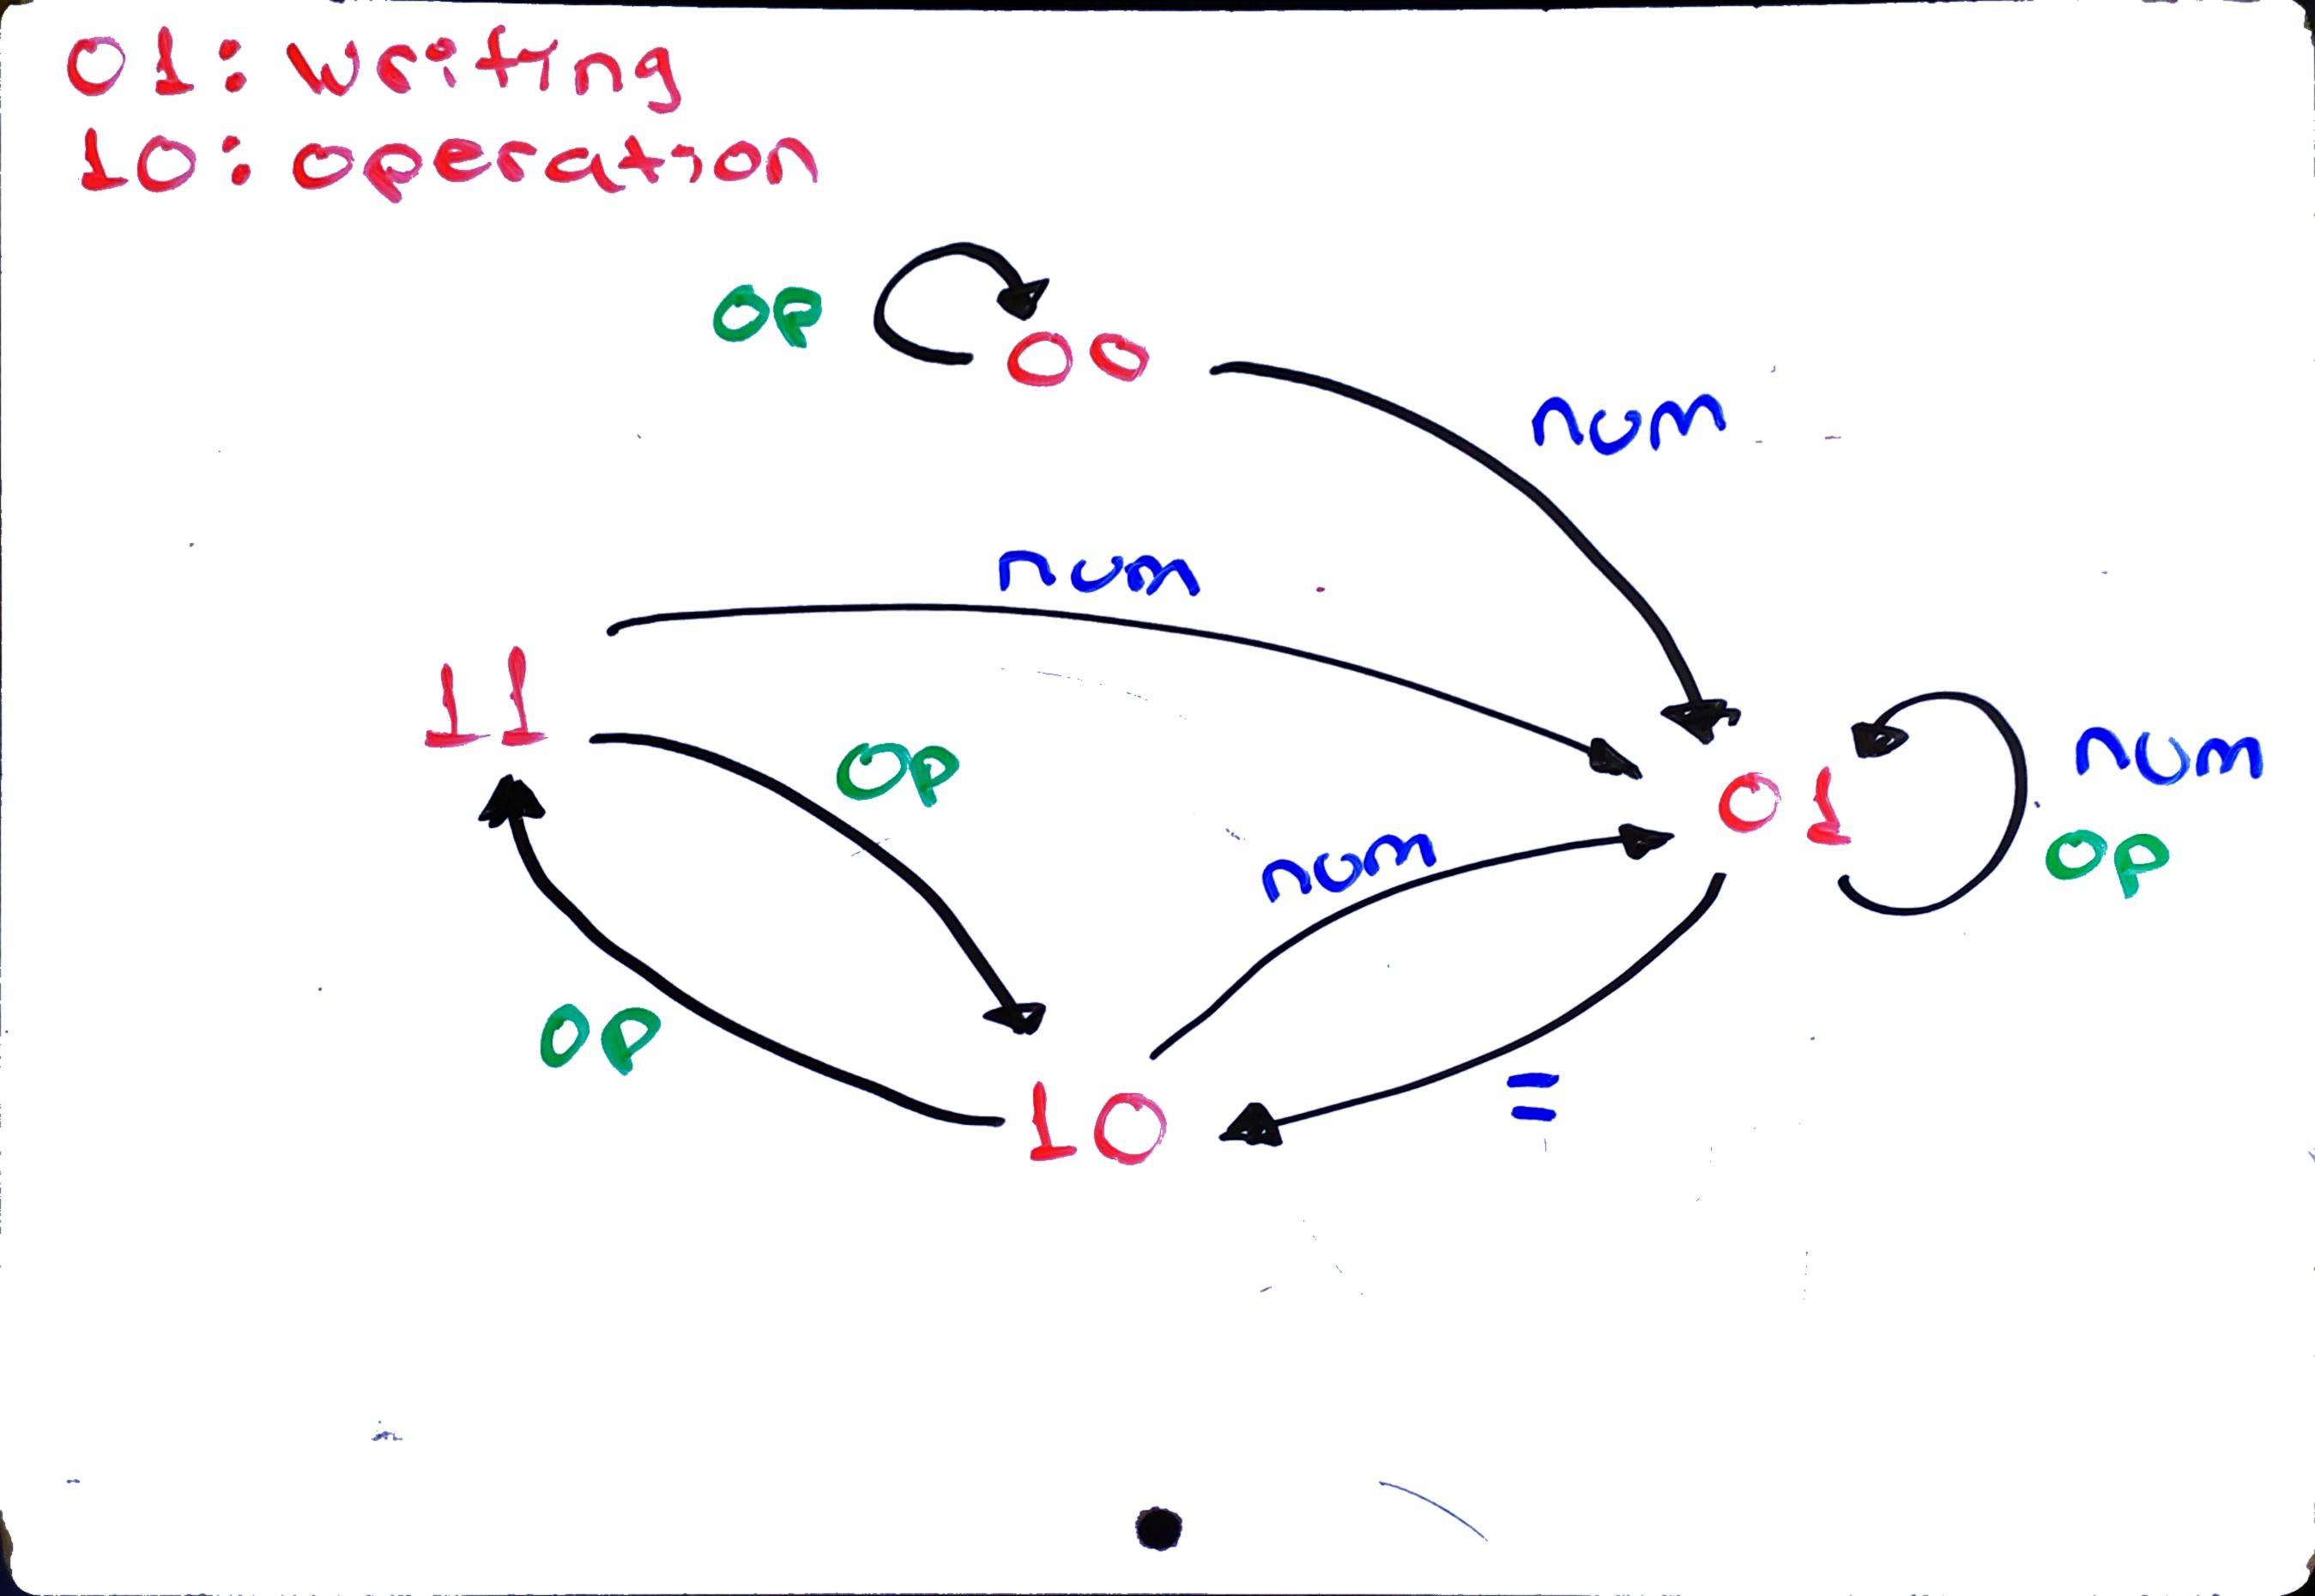 01: writing
10: operation
op
00
num
num
11
op
01
num
op
num
op
10
=